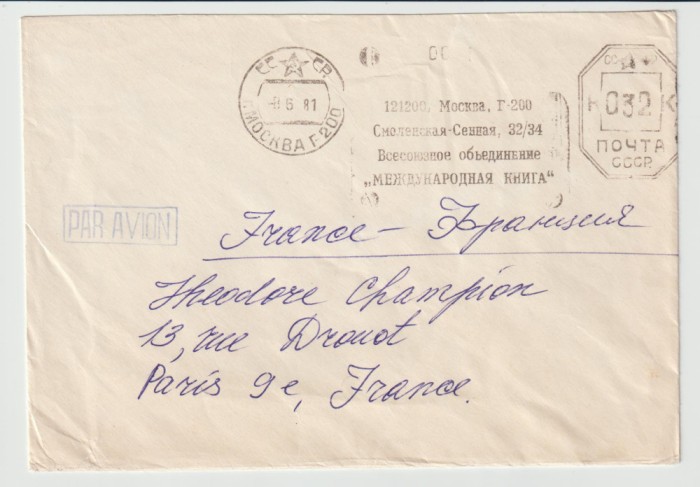 СССР
-8 6 81
Г.МОСКВА Г-200
00
121200, Москва, Г-200
Смоленская-Сенная, 32/34
Всесоюзное объединение
„МЕЖДУНАРОДНАЯ КНИГА“
СССР
К 032 К
ПОЧТА
СССР
PAR AVION
France – Франция
Theodore Champion
13, rue Drouot
Paris 9e, France.